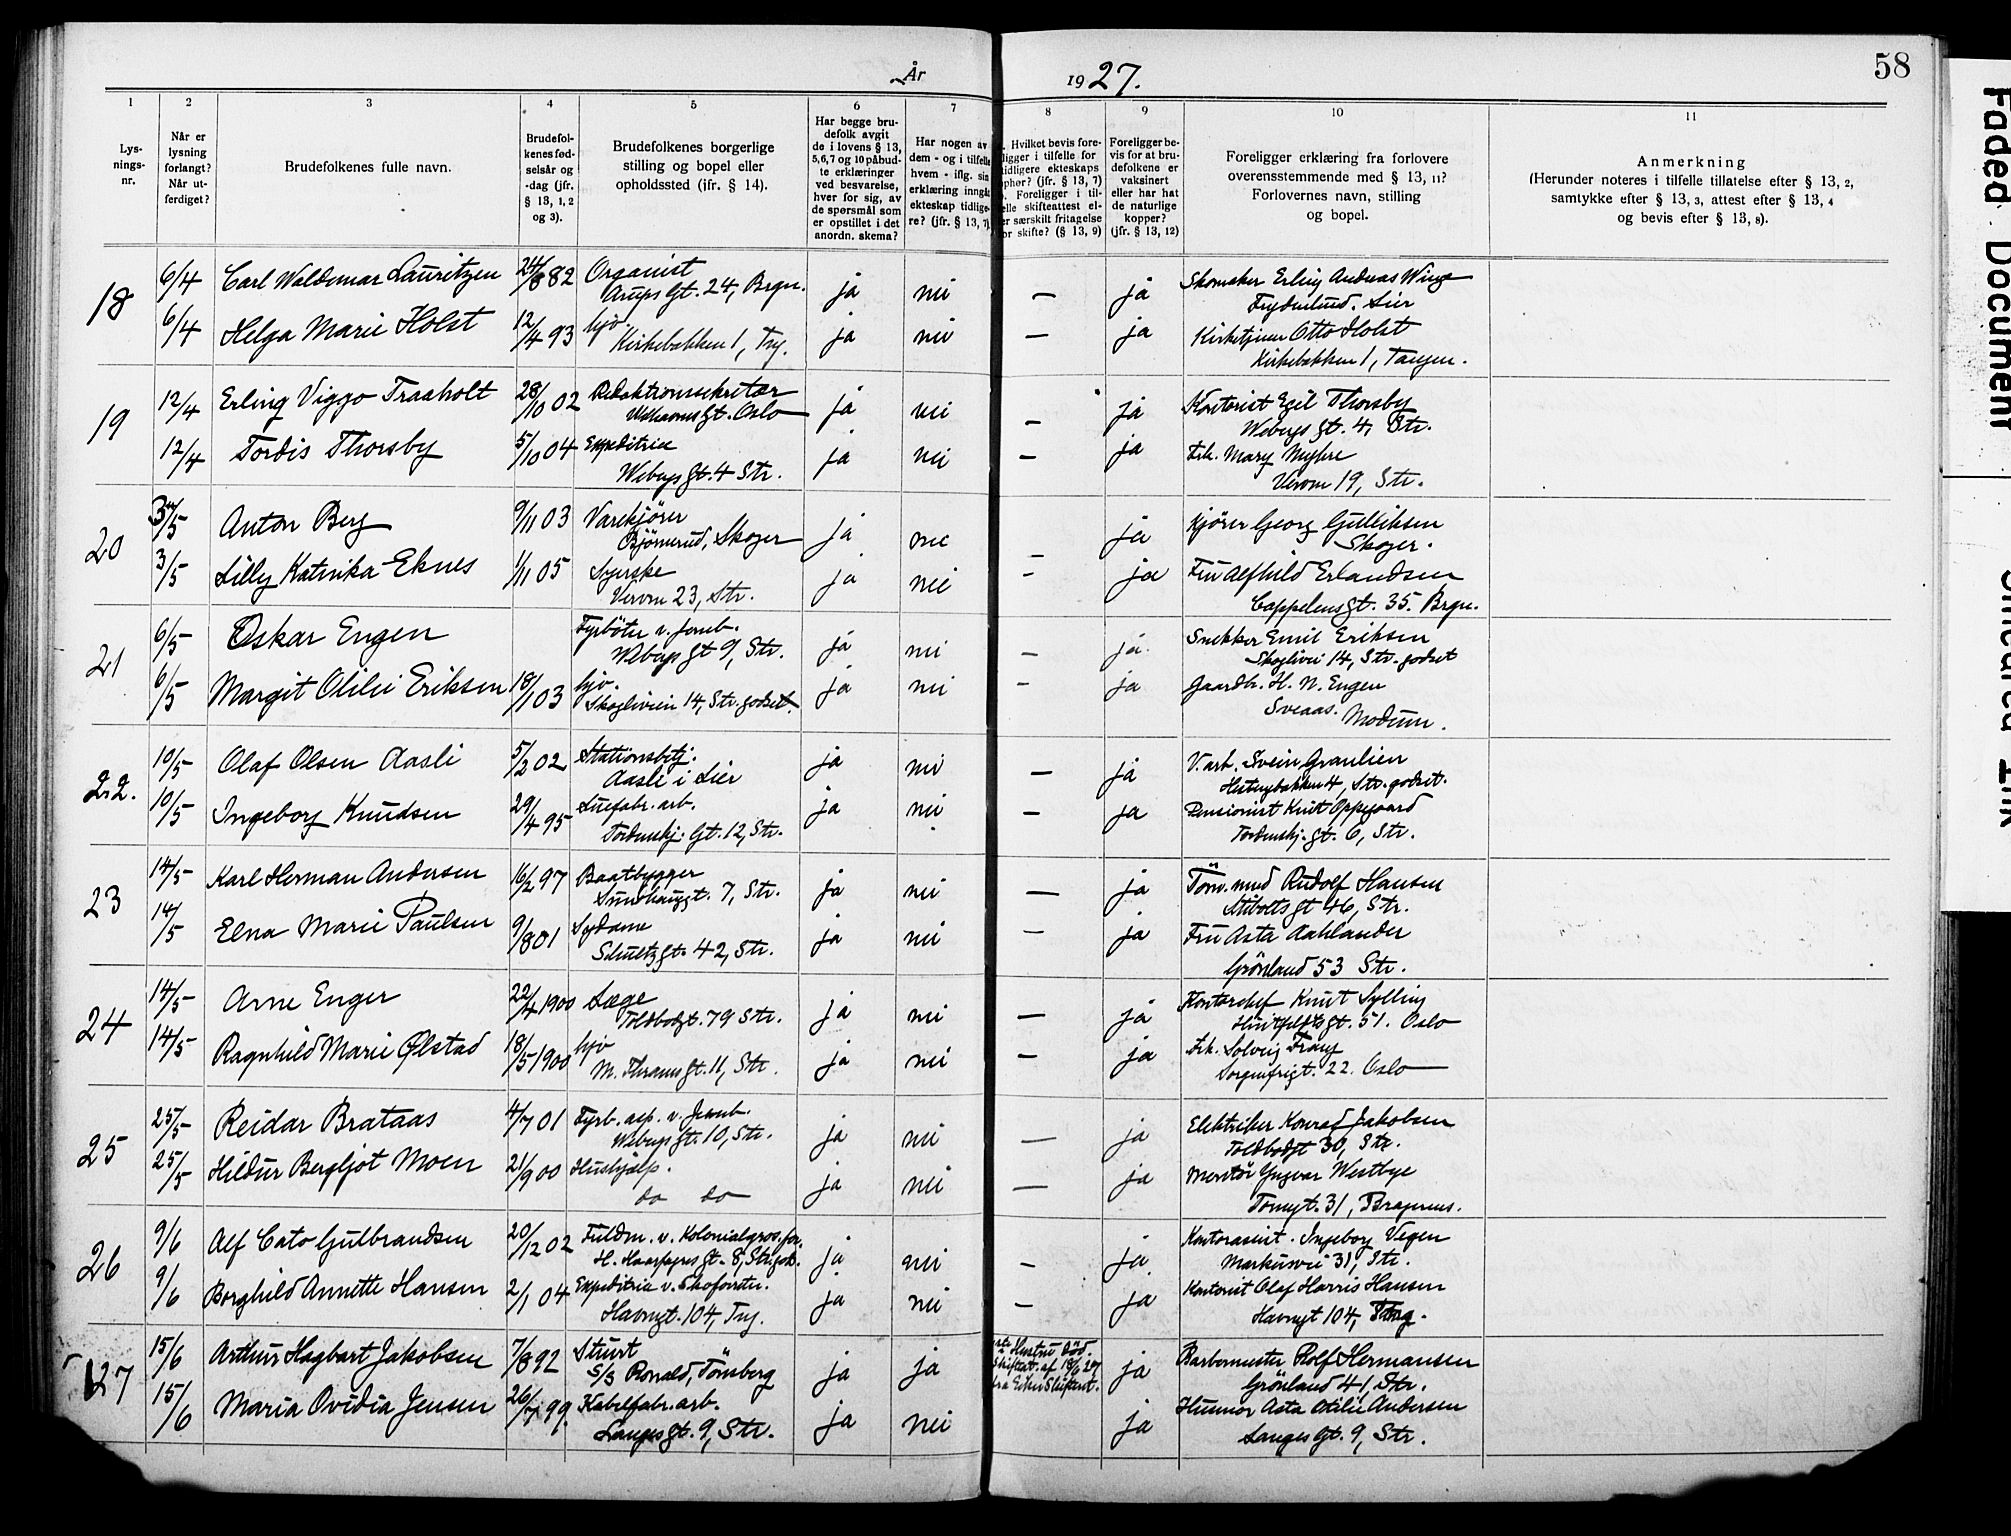 År 1927.
58
1 2 3 4 5 6 7 8 9 10 11
Lys-
nings-
nr.
Når er
lysning
forlangt?
Når ut-
ferdiget?
Brudefolkenes fulle navn.
Brudefol-
kenes fød-
selsår og
-dag (jfr.
§ 13, 1, 2
og 3).
Brudefolkenes borgerlige
stilling og bopel eller
opholdssted (ifr. § 14).
Har begge bru-
defolk avgit
de i lovens § 13,
5,6,7 og 10 påbud-
te erklæringer
ved besvarelse,
hver for sig, av
de spørsmål som
er opstillet i det
anordn. skema?
Har nogen av
dem - og i tilfelle
hvem - iflg. sin
erklæring inngåt
ekteskap tidlige-
re? (jfr. § 13, 7).
Hvilket bevis fore-
ligger i tilfelle for
tidligere ekteskaps
ophør? (jfr. § 13, 7)
Foreligger i til-
elle skifteattest el-
er særskilt fritagelse
or skifte? (§ 13, 9)
Foreligger be-
vis for at bru-
defolkene er
vaksinert
eller har hat
de naturlige
kopper?
(jfr. § 13, 12)
Foreligger erklæring fra forlovere
overensstemmende med § 13, 11?
Forlovernes navn, stilling
og bopel.
Anmerkning
(Herunder noteres i tilfelle tillatelse efter § 13, 2,
samtykke efter § 13, 3, attest efter § 13, 4
og bevis efter § 13, 8).
18 6/4 Carl Waldemar Lauritzen 24/8 82 Organist ja nei — ja Skomaker Erling Andreas Winge
Arups Gt. 24, Brgn. Frydenlund. Lier
6/4 Helga Marie Holst 12/4 93 hjv. ja nei — ja Kirketjener Otto Holst
Kirkebakken 1, Tng. Kirkebakken 1, Tangen.
19 12/4 Erling Viggo Traaholt 28/10 02 Redaktionssekretær ja nei — ja Kontorist Egil Thorsby
Gt. Oslo Webergs Gt. 4, Str.
12/4 Tordis Thorsby 5/10 04 Expeditrice ja nei — ja Frk. Mary Myhre
Webergs Gt. 4 Str. Verven 19, Str.
20 3/5 Anton Berg 9/11 03 Varekjører ja nei — ja Kjører Georg Gulliksen
Bjørnerud, Skoger Skoger.
3/5 Lilly Katinka Eknes 1/11 05 Syerske ja nei — ja Fru Alfhild Erlandsen
Verven 23, Str. Cappelens Gt. 35. Brgn.
21 6/5 Oskar Engen Fyrbøter v. Jernb. ja nei — ja Snekker Emil Eriksen
Webergs Gt 9, Str. Skoglivei 14, Str. godset
6/5 Margit Otilie Eriksen 18/1 03 hjv. ja nei — ja Gaardbr. H. N. Engen
Skogliveien 14, Str. godset. Sveaas. Modum.
22. 10/5 Olaf Olsen Aasli 5/2 02 Stationsbetj. ja nei — ja V. arb. Svein Graulien
Aasli i Lier 4, Str. godset.
10/5 Ingeborg Knudsen 29/4 95 Luefabr. arb. ja nei — ja Pensionist Knut Oppegaard
Tordenskj. Gt. 12, Str. Tordenskj. Gt. 6, Str.
23 14/5 Karl Herman Andersen 16/2 97 Baatbygger ja nei — ja Tøm. Rudolf Hansen
Sundhaugt. 7, Str. Stibolts Gt 46, Str.
14/5 Elna Marie Paulsen 9/8 01 Sydame ja nei — ja Fru Asta Aahlander
Schultz Gt. 42, Str. Grönland 53 Str.
24 14/5 Arne Enger 22/4 1900 Læge ja nei — ja Kontorchef Knut Sylling
Toldbodgt. 79 Str. Huitfeldts Gt. 51. Oslo
14/5 Ragnhild Marie Ølstad 18/5 1900 hjv ja nei — ja Frk. Solveig Frang
M. Thranes Gt. 11, Str. Sorgenfrigt. 22. Oslo
25 25/5 Reidar Brataas 4/7 01 Fyrb. asp. v. Jernb. ja nei — ja Elektriker Konrad Jakobsen
Webergs Gt. 10, Str. Toldbodgt 30, Str.
25/5 Hildur Bergljot Moen 21/9 00 Hushjælp. ja nei — ja Montör Yngvar Westbye
do do Tomtgt. 31, Bragernes.
26 9/6 Alf Cato Gulbrandsen 20/12 02 Fuldm. v. Kolonialgros. for. ja nei — ja Kontorassist. Ingeborg Vegen
H. Haarfagres Gt. 8, Str. gods. Markusvei 31, Str.
9/6 Borghild Annette Hansen 2/1 04 Expeditrice v. Skoforretn. ja nei — ja Kontorist Olaf Harris Hansen
Havnegt. 104, Tng. Havnegt 104, Tang.
27 15/6 Arthur Hagbart Jakobsen 7/8 92 Stuert ja ja Hustru död. ja Barbermester Rolf Hermansen
S/S Ronald, Tönsberg Skifteat. af 18/6 27 Grönland 41, Str.
fra Eiker Skifteret.
15/6 Maria Ovidia Jensen 26/7 99. Kabelfabr. arb. ja nei ja Husmor Asta Otilie Andersen
Langes Gt. 9, Str. Langes Gt. 9, Str.
Faded Document